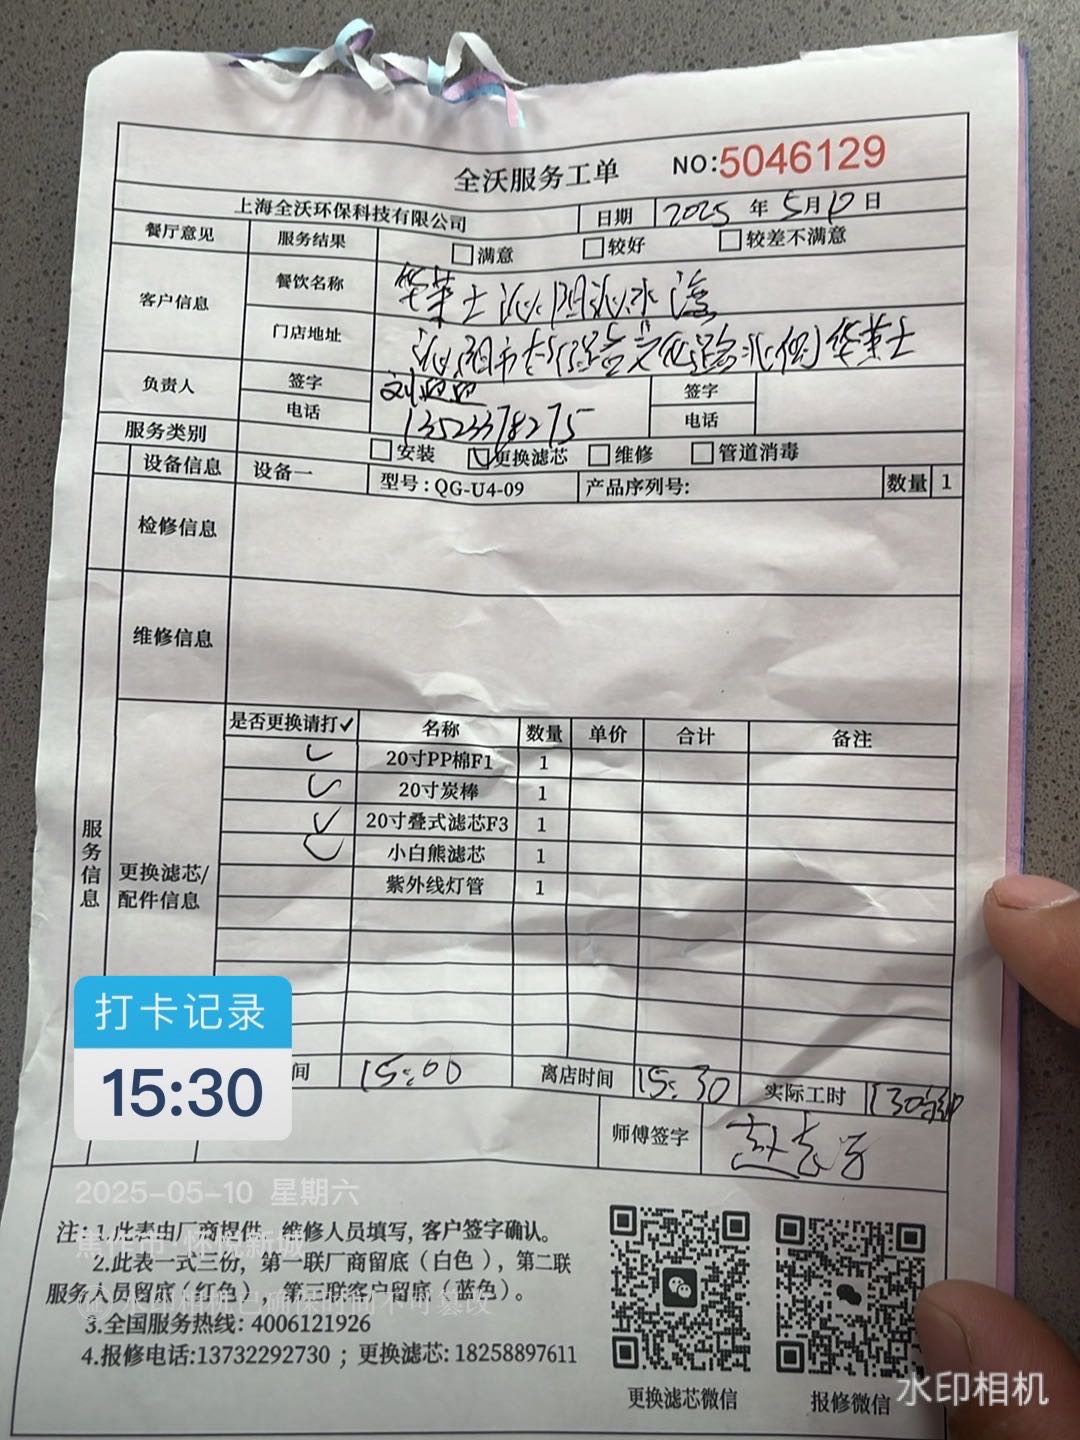 全沃服务工单 NO:5046129
上海全沃环保科技有限公司 日期 2025 年 5月10日
餐厅意见 服务结果 □满意 □较好 □较差不满意
客户信息 餐饮名称 华莱士沁阳沁水湾
门店地址 沁阳市 华莱士
负责人 签字 签字
电话 13523378275 电话
服务类别 □安装 ☑更换滤芯 □维修 □管道消毒
设备信息 设备一 型号：QG-U4-09 产品序列号: 数量 1
检修信息
维修信息
服务信息
更换滤芯/
配件信息
是否更换请打✓ 名称 数量 单价 合计 备注
✓ 20寸PP棉F1 1
✓ 20寸炭棒 1
✓ 20寸叠式滤芯F3 1
✓ 小白熊滤芯 1
紫外线灯管 1
打卡记录
15:30
间 15:00 离店时间 15:30 实际工时 130分钟
师傅签字
2025-05-10 星期六
注：1.此表由厂商提供，维修人员填写, 客户签字确认。
焦作市·怀悦新城
2.此表一式三份，第一联厂商留底（白色），第二联
服务人员留底(红色)，第三联客户留底（蓝色）。
水印相机已确保时间不可篡改
3.全国服务热线: 4006121926
4.报修电话:13732292730；更换滤芯: 18258897611
更换滤芯微信 报修微信
水印相机